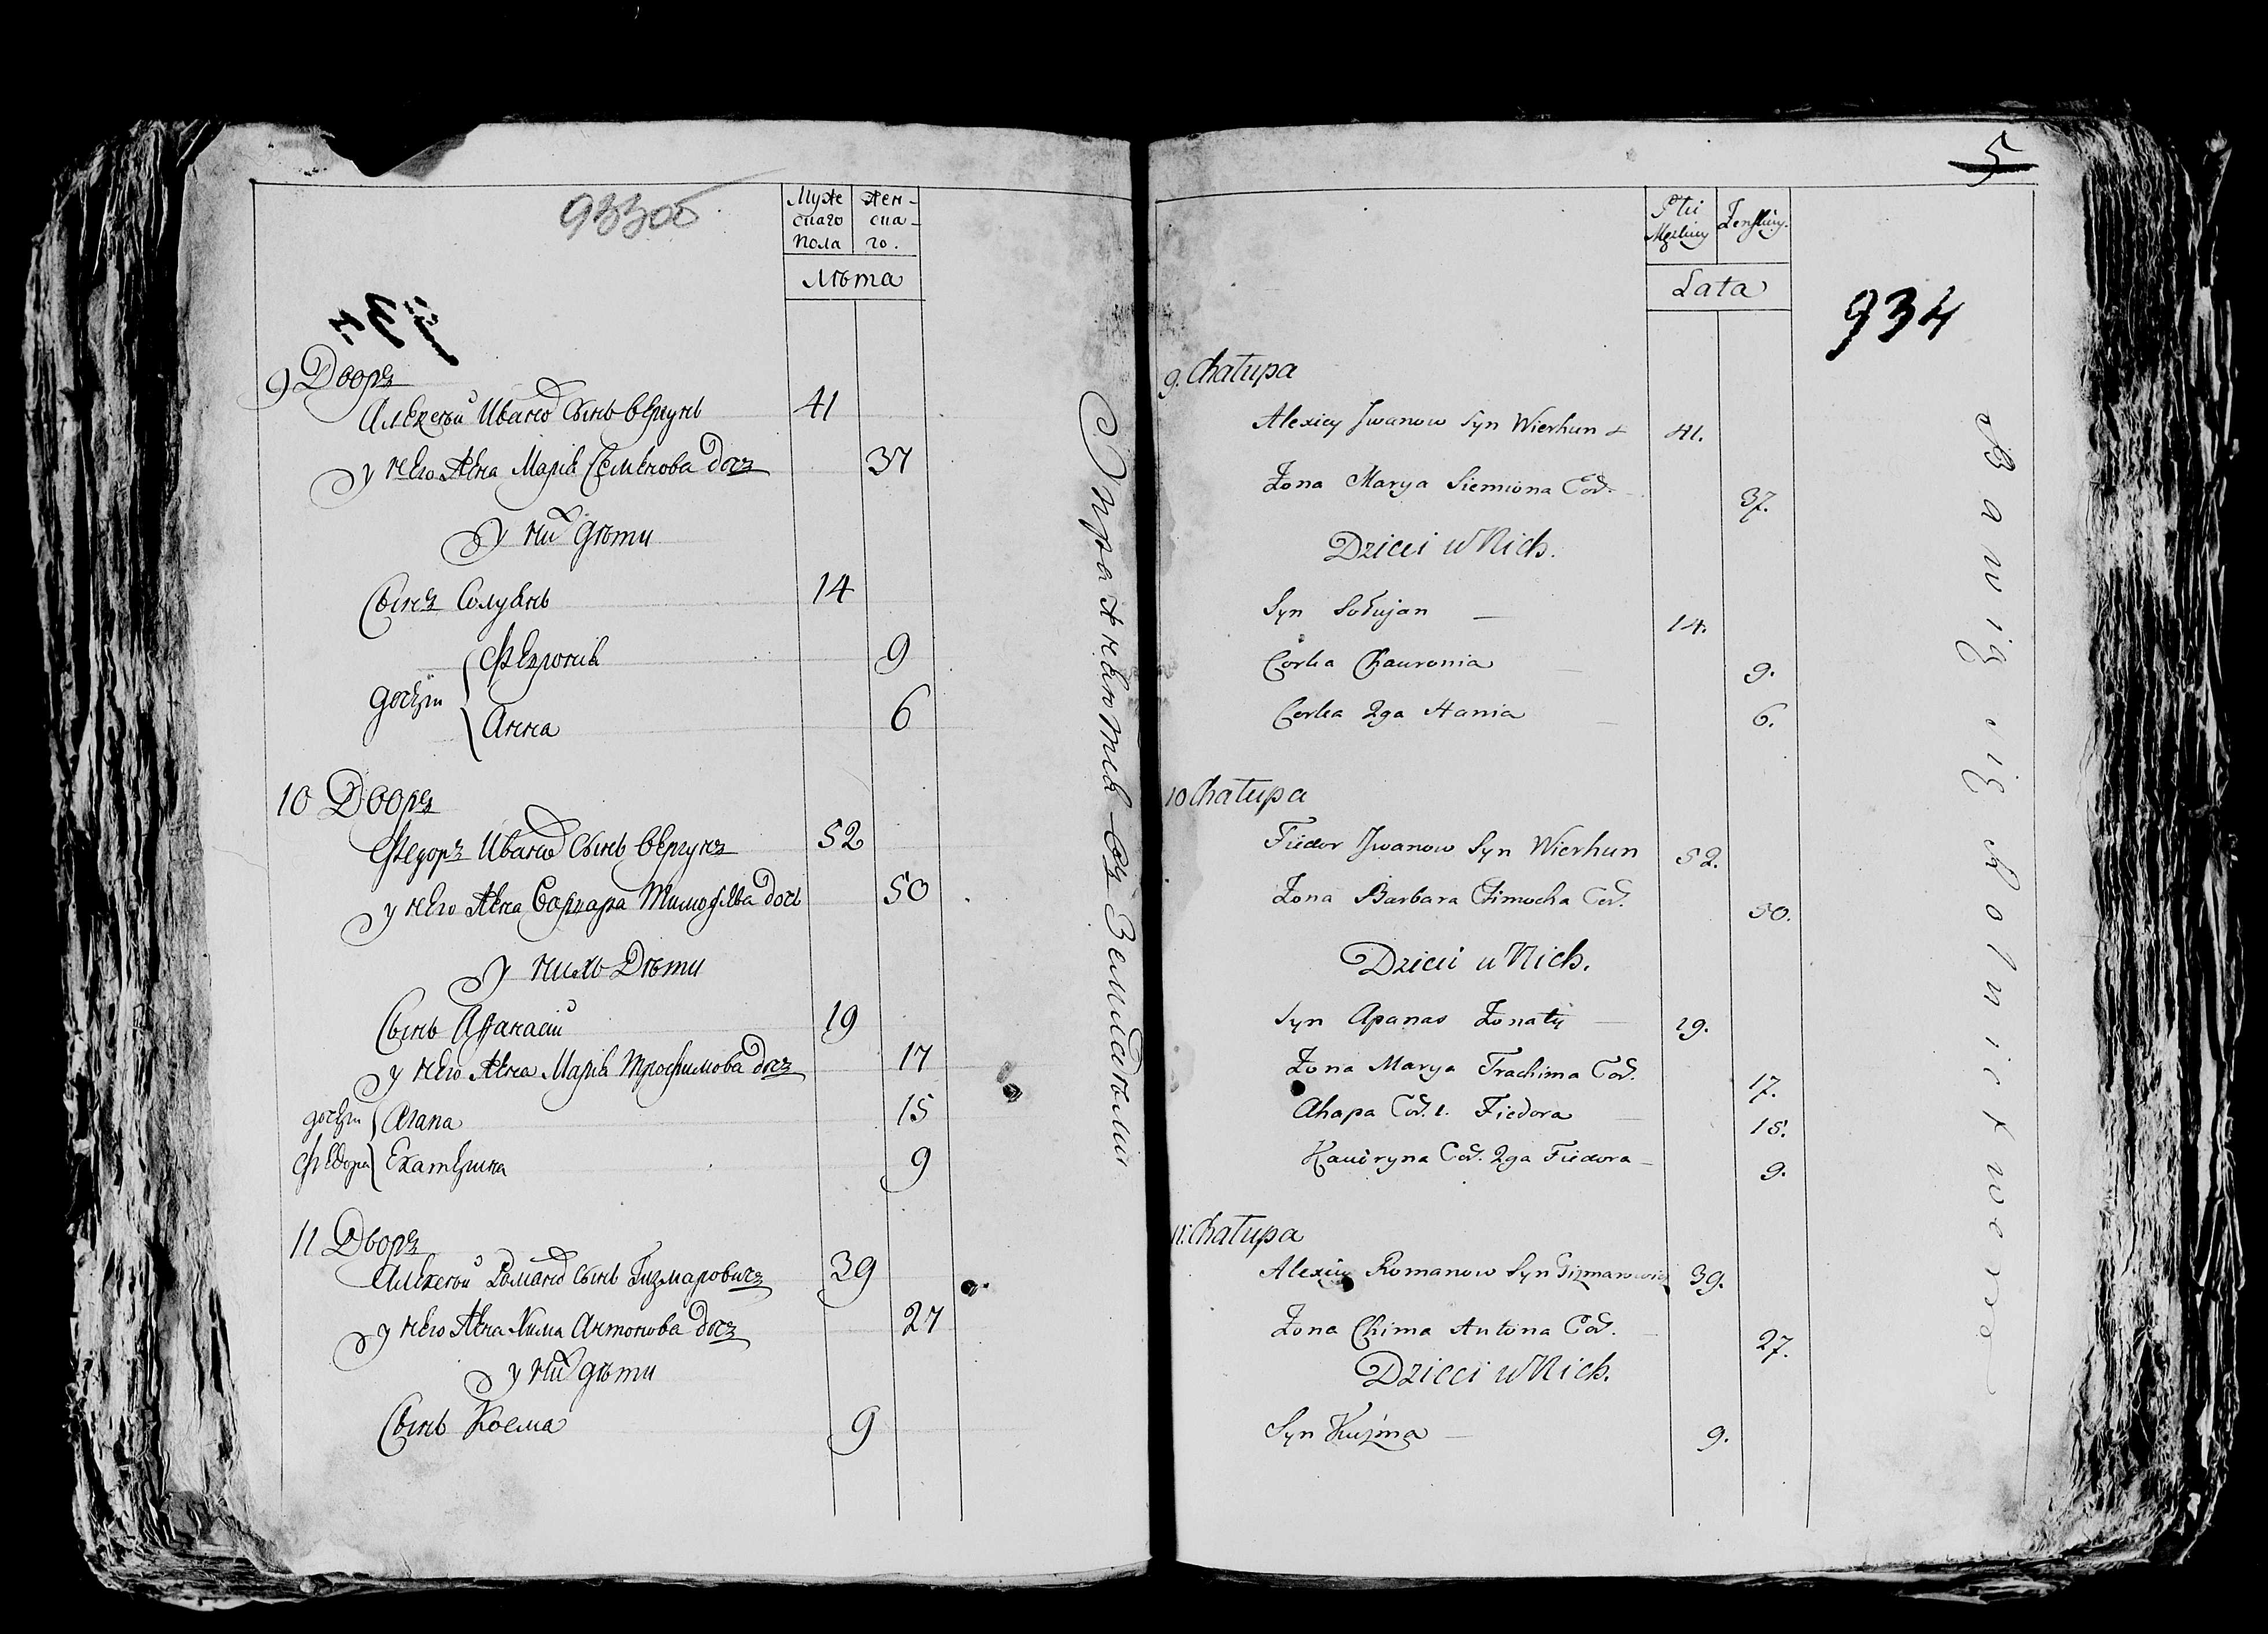 933об
Муже
скаго
пола
Жен-
ска-
го.
Лѣта
9 Дворъ
Алексѣй Иванов Сынъ Вергунь 41
у него Жена Маріа Семѣнова дочъ 37
У них дѣти
Сынъ Солуянъ 14
дочери
Февронія 9
Анна 6
10 Дворъ
Федоръ Иванов Сынъ Вергунъ 52
у него Жена Варвара Тимофѣева дочь 50
У нихъ Дѣти
Сынъ Афанасій 19
у него Жена Маріа Трофимова дочъ 17
дочери Агапа 15
Федора Екатерина 9
11 Дворъ
Алексѣй Романов Сынъ Гизмаровичъ 39
у него Жена Хима Антонова дочъ 27
у них дѣти
Сынъ Козма 9
Упражняются Въ Земледѣліи
5
Płci
Męskiey
Żeńskiey.
Lata
934
9. Chałupa
Alexiey Jwanow Syn Wierhun 41.
Żona Marya Siemiona Cod. 37.
Dzieci u Nich.
Syn Sołujan 14.
Corka Chauronia 9.
Corka 2ga Hania 6.
10 Chałupa
Fiedor Jwanow Syn Wierhun 52.
Żona Barbara Cimocha Cod. 50.
Dzieci u Nich.
Syn Apanas Żonaty 19.
Żona Marya Trachima Cod. 17.
Ahapa Cod. 1. Fiedora 15.
Kaciryna Cod. 2ga Fiedora 9.
11. Chałupa
Alexiey Romanow Syn Gizmarowicz 39.
Żona Chima Antona Cod. 27.
Dzieci u Nich.
Syn Kuźma 9.
Bawią się Rolnictwem